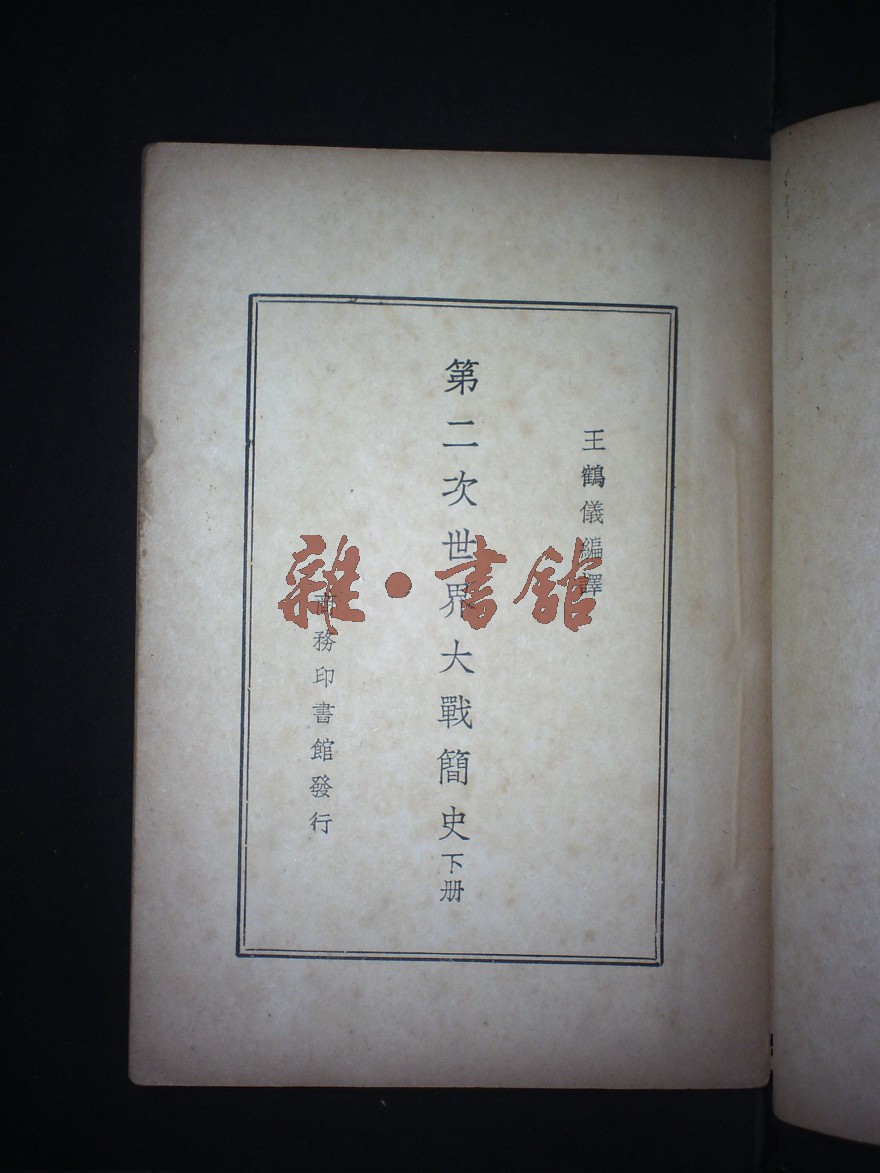 王鶴儀編譯
第二次世界大戰簡史下册
商務印書館發行
雜·書館